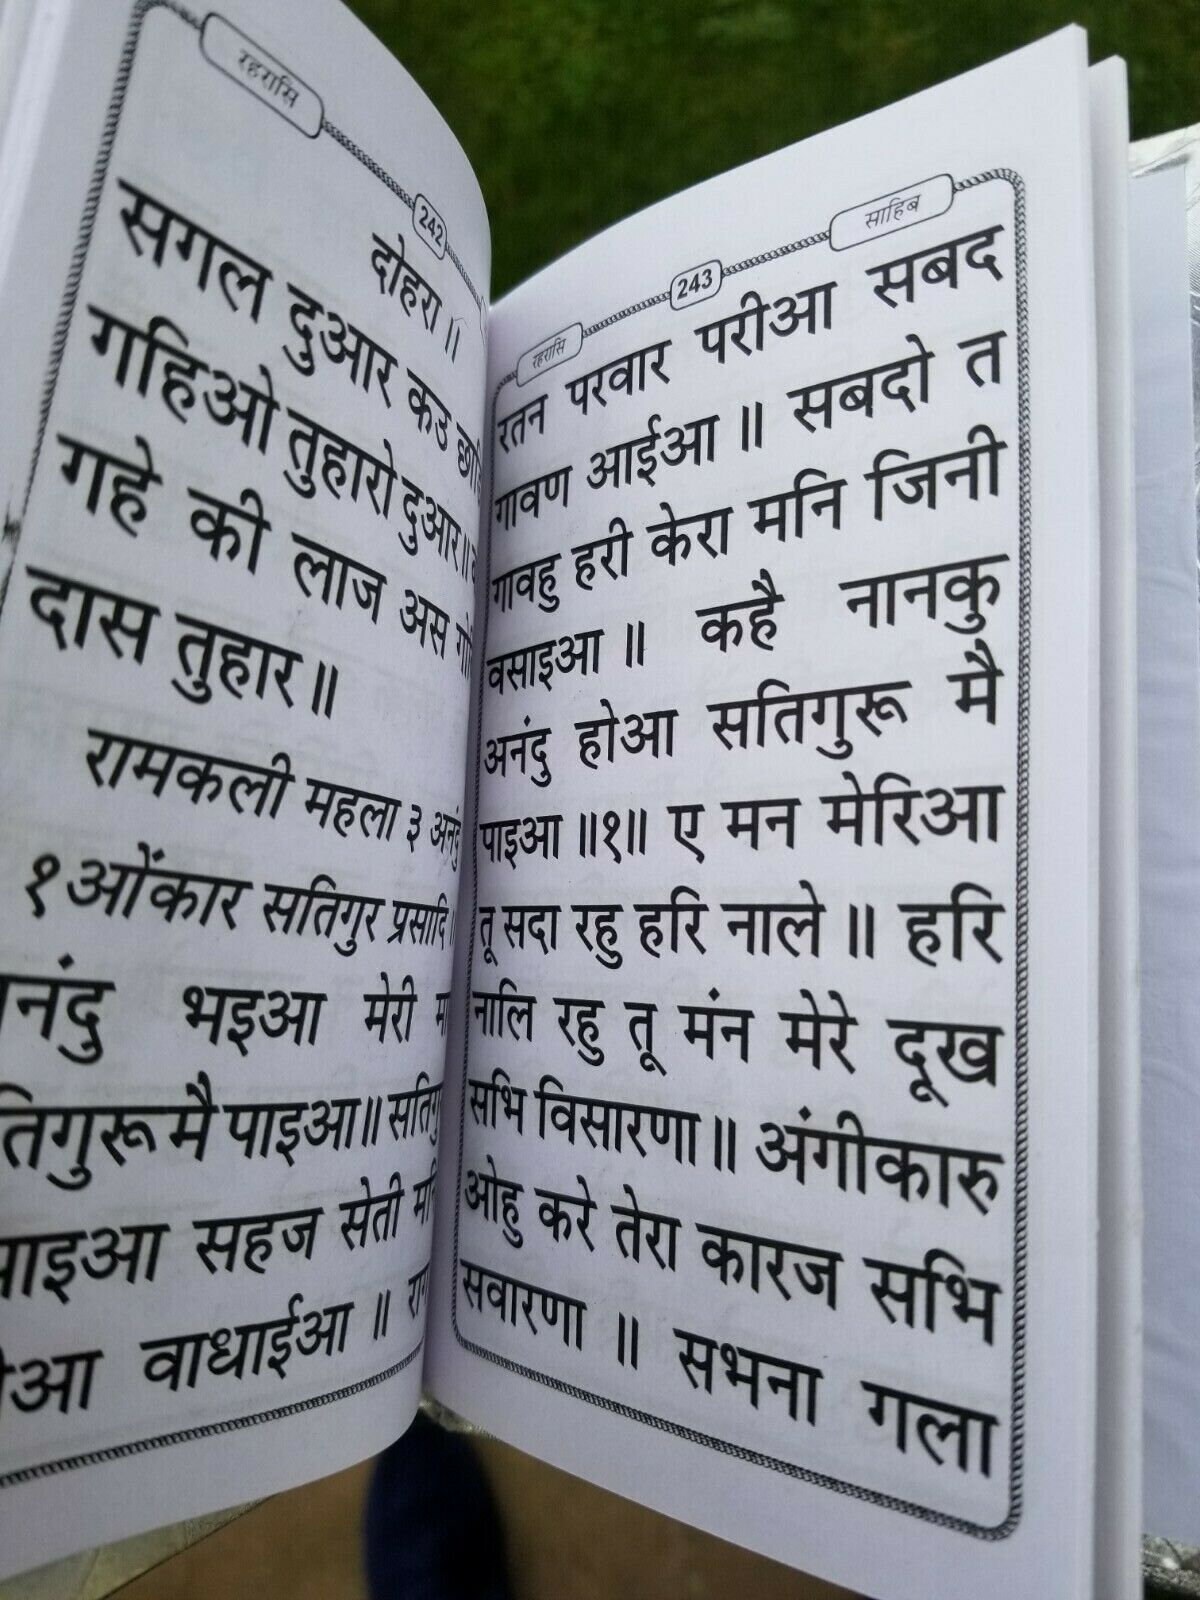 रहरासि
242
दोहरा॥
सगल दुआर कउ
गहिओ तुहारो दुआर॥
गहे की लाज अस
दास तुहार॥
रामकली महला ३ अनंदु
१ओंकार सतिगुर प्रसादि॥
भइआ मेरी
पाइआ॥
सहज सेती
वाधाईआ ॥
रहरासि
243
साहिब
रतन परवार परीआ सबद
गावण आईआ॥ सबदो त
गावहु हरी केरा मनि जिनी
वसाइआ॥ कहै नानकु
अनंदु होआ सतिगुरू मै
पाइआ॥१॥ ए मन मेरिआ
तू सदा रहु हरि नाले॥ हरि
नालि रहु तू मंन मेरे दूख
सभि विसारणा॥ अंगीकारु
ओहु करे तेरा कारज सभि
सवारणा॥ सभना गला